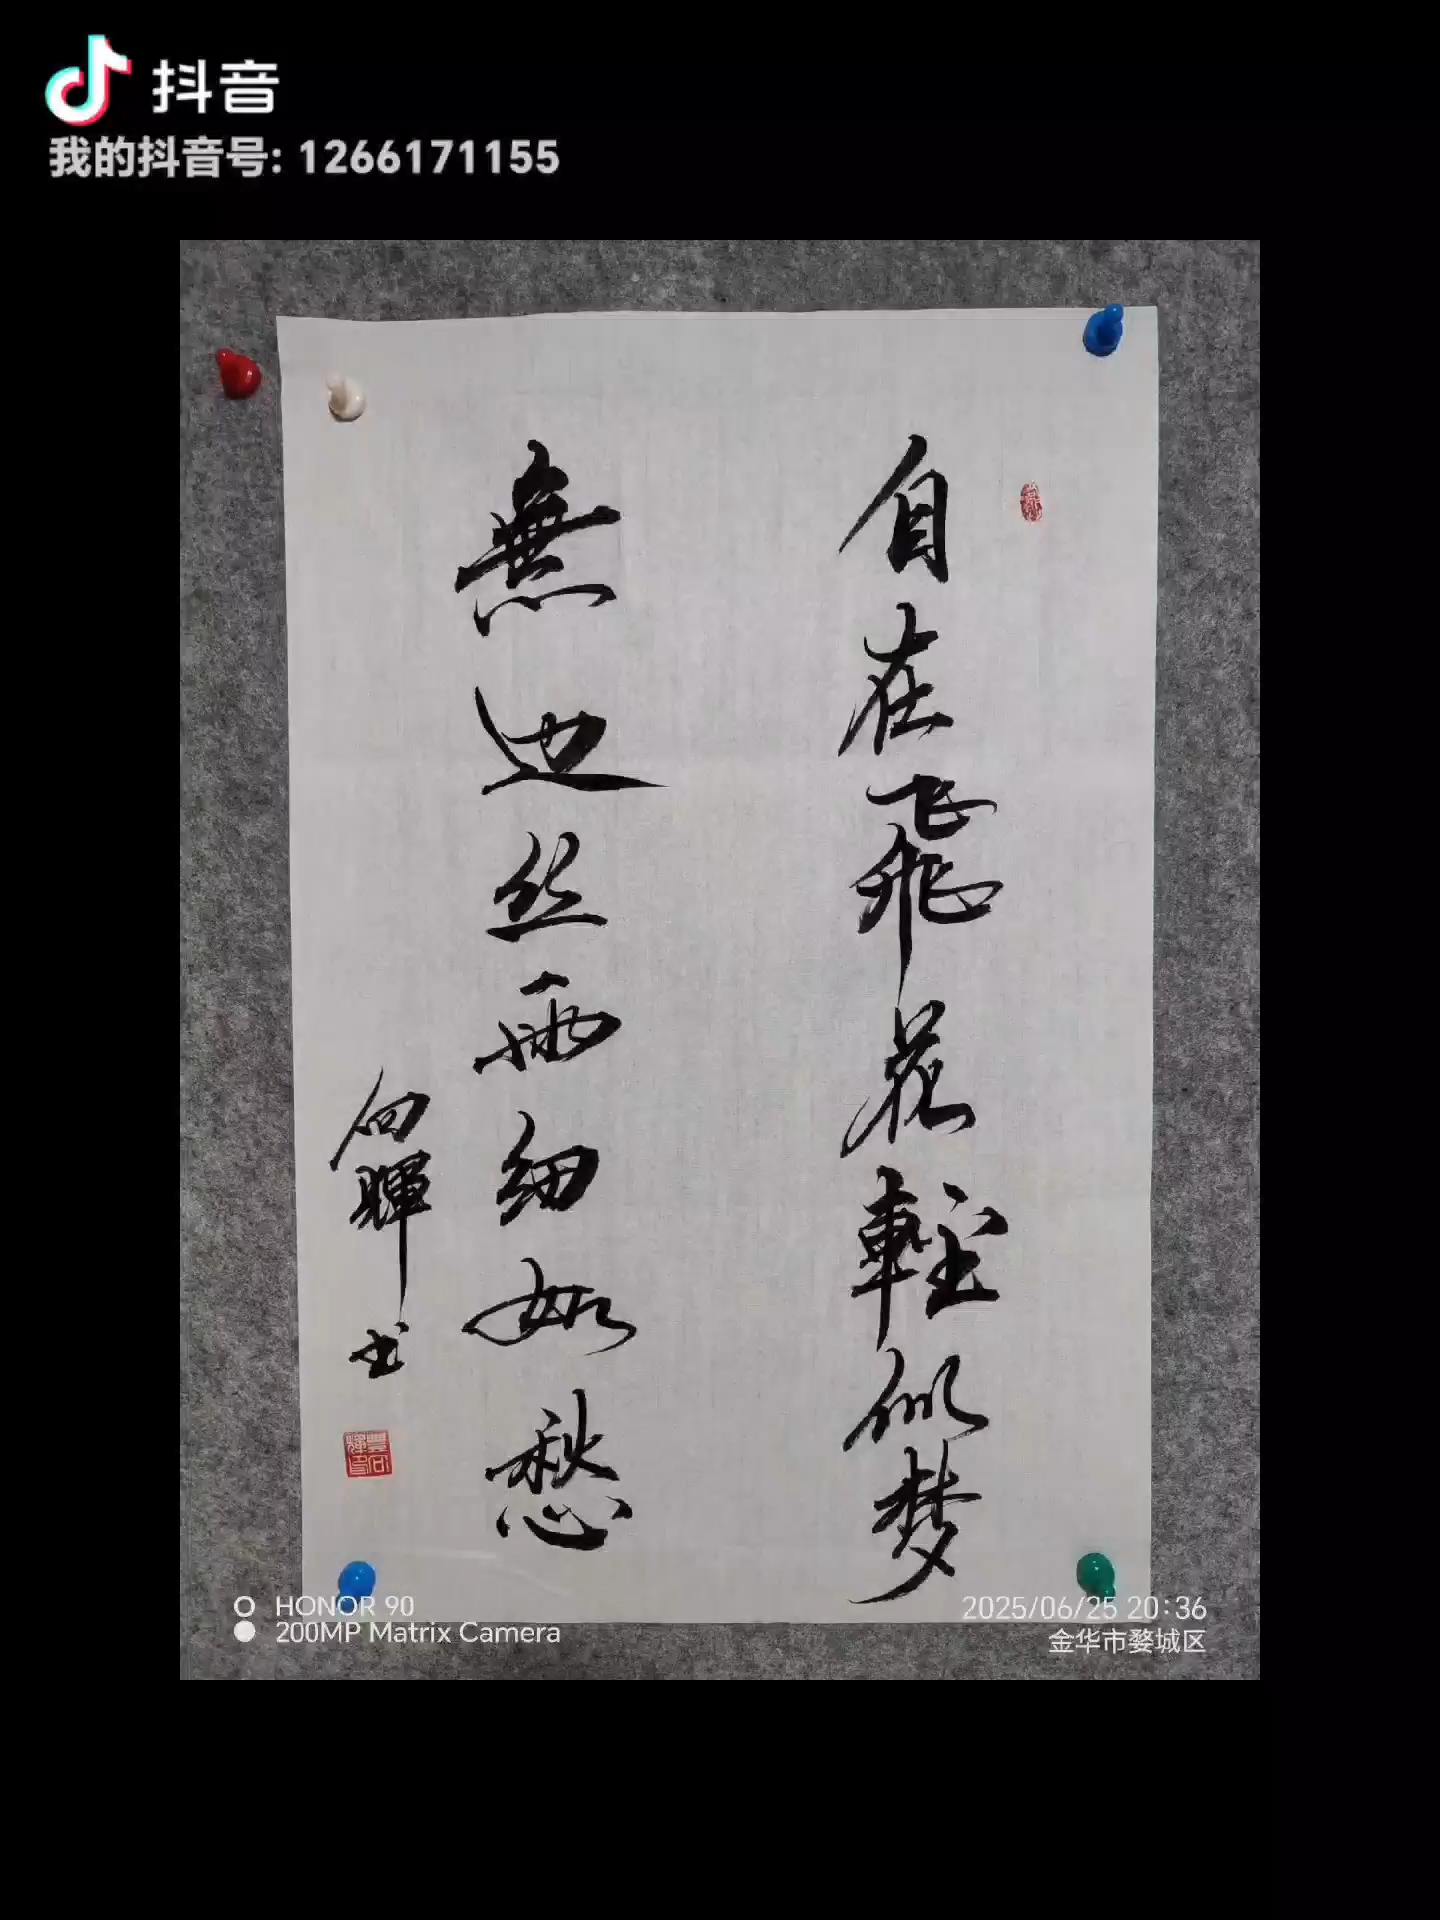 抖音
我的抖音号: 1266171155
自在飛花輕似梦
無边丝雨细如愁
向暉书
HONOR 90
200MP Matrix Camera
2025/06/25 20:36
金华市婺城区